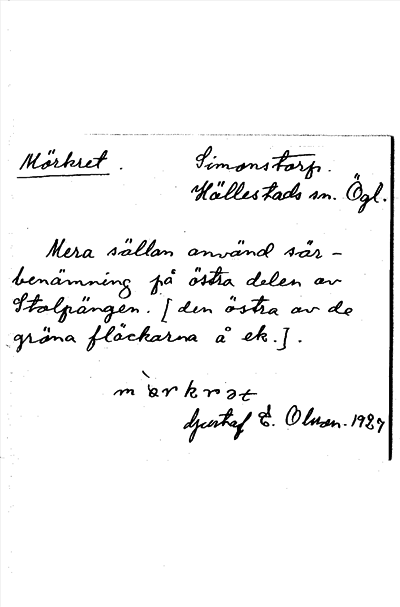 Mörkret. Simonstorp.
Hällestads sn. Ögl.
Mera sällan använd sär-
benämning på östra delen av
Stolpängen. [den östra av de
gröna fläckarna å ek.].
Gustaf E. Olsson. 1927